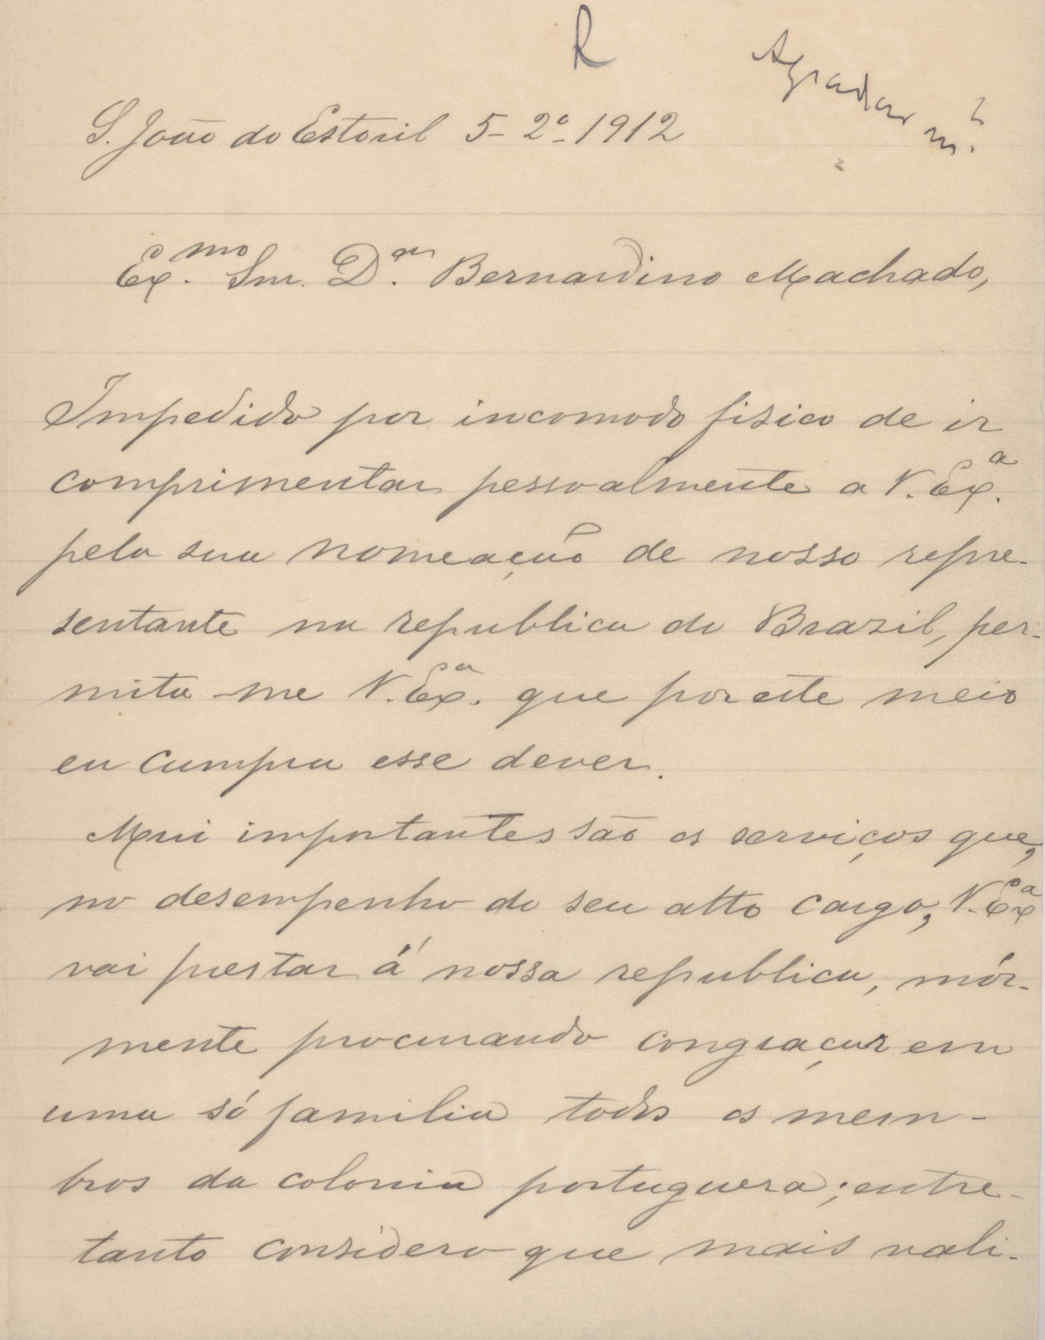 R
Agradar m.to
S. João do Estoril 5-2º-1912
Ex.mo Snr. D.or Bernardino Machado,
Impedido por incomodo fisico de ir
comprimentar pessoalmente a V. Ex.a
pela sua nomeação de nosso repre-
sentante na republica do Brazil, per-
mita-me V. Ex.a que por este meio
eu cumpra esse dever.
Mui importantes são os serviços que,
no desempenho do seu alto cargo, V. Ex.a
vai prestar á nossa republica, mór-
mente procurando congraçar em
uma só familia todos os mem-
bros da colonia portugueza; entre-
tanto considero que mais vali-